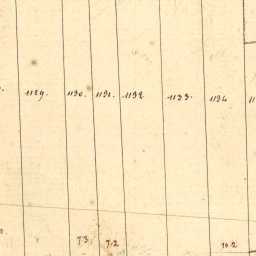 1129. 1130. 1131. 1132 1133. 1134
73 72 70.2